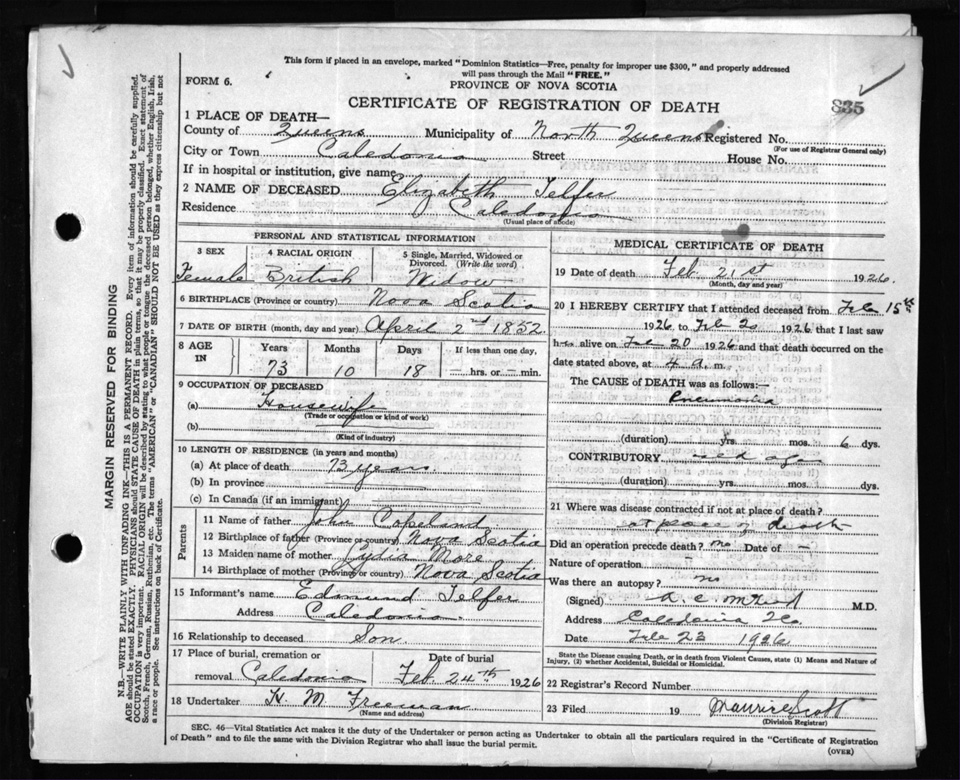 This form if placed in an envelope, marked "Dominion Statistics—Free, penalty for improper use $300," and properly addressed
will pass through the Mail "FREE."
FORM 6.
PROVINCE OF NOVA SCOTIA
CERTIFICATE OF REGISTRATION OF DEATH
835
1 PLACE OF DEATH—
County of Queens Municipality of North Queens Registered No.
(For use of Registrar General only)
City or Town Caledonia Street House No.
If in hospital or institution, give name
2 NAME OF DECEASED Elizabeth Telfer
Residence Caledonia
(Usual place of abode)
PERSONAL AND STATISTICAL INFORMATION
3 SEX 4 RACIAL ORIGIN 5 Single, Married, Widowed or
Divorced. (Write the word)
Female British Widow
6 BIRTHPLACE (Province or country) Nova Scotia
7 DATE OF BIRTH (month, day and year) April 2nd 1852
8 AGE IN Years Months Days If less than one day,
73 10 18 — hrs. or — min.
9 OCCUPATION OF DECEASED
(a) Housewife
(Trade or occupation or kind of work)
(b)
(Kind of industry)
10 LENGTH OF RESIDENCE (in years and months)
(a) At place of death 73 years
(b) In province
(c) In Canada (if an immigrant)
Parents
11 Name of father John Copeland
12 Birthplace of father (Province or country) Nova Scotia
13 Maiden name of mother Lydia More
14 Birthplace of mother (Province or country) Nova Scotia
15 Informant's name Edmund Telfer
Address Caledonia
16 Relationship to deceased Son
17 Place of burial, cremation or Date of burial
removal Caledonia Feb 24th 1926
18 Undertaker H. M. Freeman
(Name and address)
MEDICAL CERTIFICATE OF DEATH
19 Date of death Feb 21st 1926.
(Month, day and year)
20 I HEREBY CERTIFY that I attended deceased from Feb 15th
1926 to Feb 20 1926 that I last saw
h alive on Feb 20 1926 and that death occurred on the
date stated above, at 4 a. m.
The CAUSE of DEATH was as follows:—
Pneumonia
(duration) yrs. mos. 6 dys.
CONTRIBUTORY age
(duration) yrs. mos. dys.
21 Where was disease contracted if not at place of death?
at place of death
Did an operation precede death? no Date of —
Nature of operation
Was there an autopsy? no
(Signed) M.D.
Address Caledonia
Date Feb 23 1926
State the Disease causing Death, or in death from Violent Causes, state (1) Means and Nature of
Injury, (2) whether Accidental, Suicidal or Homicidal.
22 Registrar's Record Number
23 Filed 19 Maurice Scott
(Division Registrar)
SEC. 46—Vital Statistics Act makes it the duty of the Undertaker or person acting as Undertaker to obtain all the particulars required in the "Certificate of Registration
of Death" and to file the same with the Division Registrar who shall issue the burial permit.
(OVER)
MARGIN RESERVED FOR BINDING
N.B.—WRITE PLAINLY WITH UNFADING INK—THIS IS A PERMANENT RECORD. Every item of information should be carefully supplied.
AGE should be stated EXACTLY. PHYSICIANS should STATE CAUSE OF DEATH in plain terms, so that it may be properly classified. Exact statement of
OCCUPATION is very important. RACIAL ORIGIN will be described by stating to what people or tongue the deceased person belonged, whether English, Irish,
Scotch, French, German, Russian, Ruthenian, etc. The terms "AMERICAN" or "CANADIAN" SHOULD NOT BE USED as they express citizenship but not
a race or people. See instructions on back of Certificate.